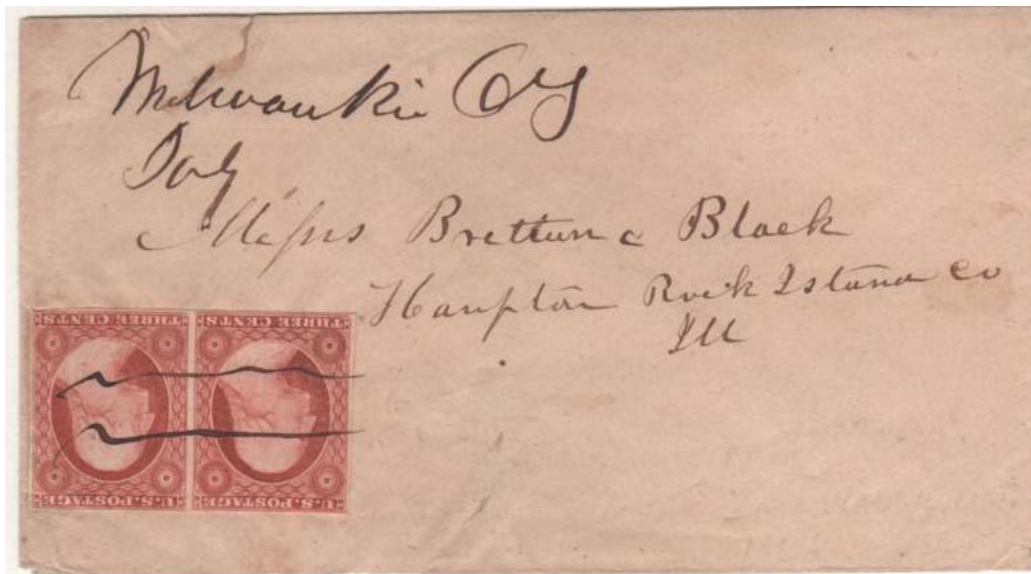 Milwaukie O.T.
July
Messrs Brettun & Black
Hampton Rock Island Co
Ill
THREE CENTS THREE CENTS
U.S. POSTAGE U.S. POSTAGE